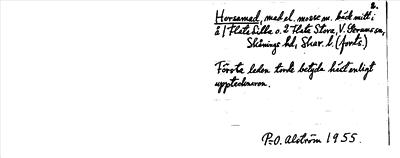 2.
Horsamad, med el. mosse m. bäck mitt i
å 1 Flata Lilla o. 2 Flata Stora, V. Gerums sn,
Skånings hd, Skar. l. (forts.)
Första leden torde betyda häst enligt
upptecknaren.
P-O. Alström 1955.